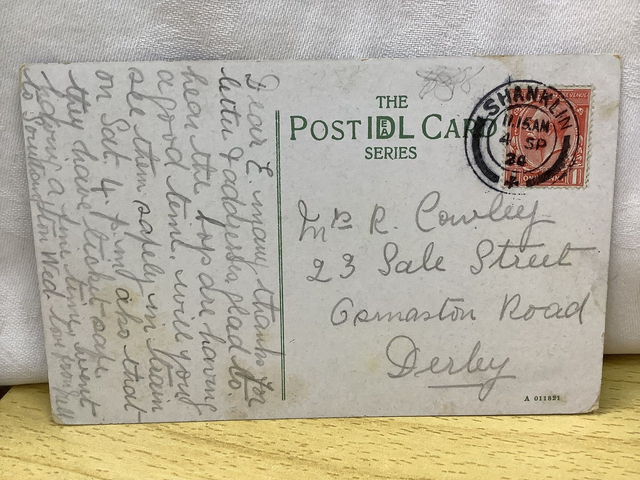 Dear E. many thanks for
letter & address, glad to
hear the boys are having
a good time. will you
see them safely in train
on Sat. 4 p.m. also that
they have ticket safe
having a fine time, went
to Southampton Wed Love from all
THE
POST IDEAL CARD
SERIES
SHANKLIN
11 15 AM
4 SP
Mrs R. Cowley
23 Sale Street
Osmaston Road
Derby
A 011821